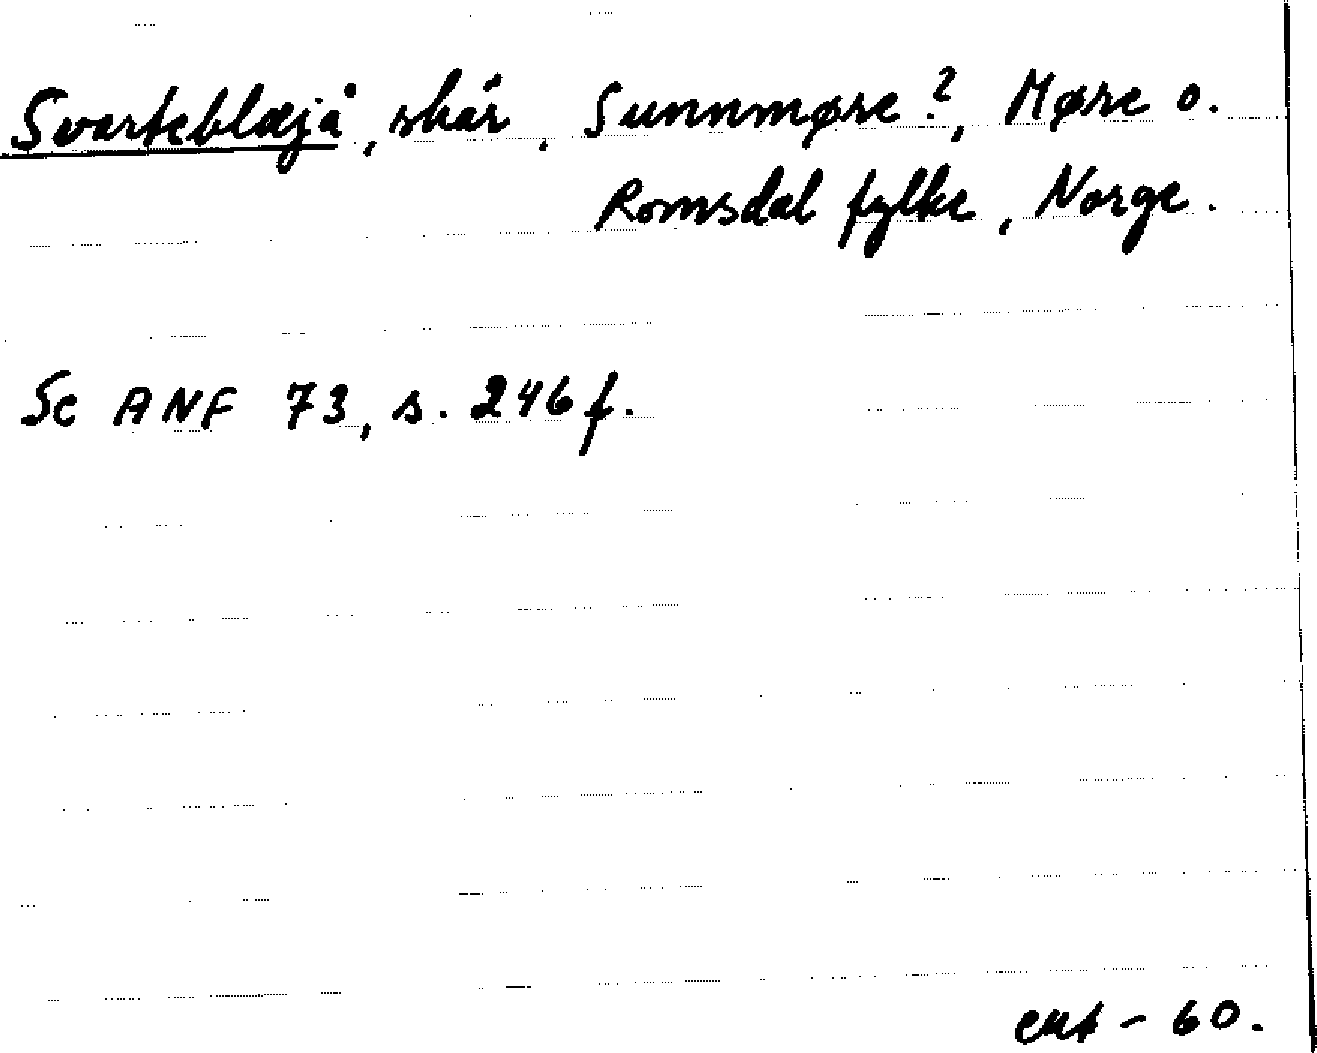 Svarteblæjå, skår, Sunnmøre?, Møre o.
Romsdal fylke, Norge.
Se ANF 73, s. 246 f.
- 60.